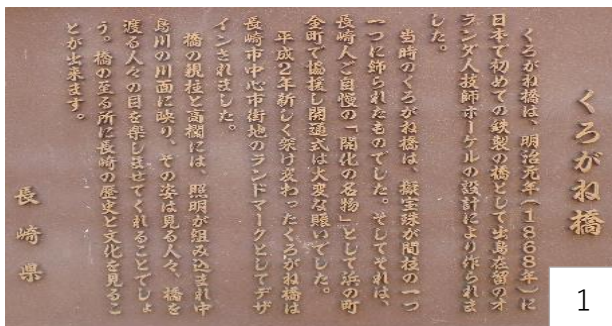 くろがね橋
くろがね橋は、明治元年(1868年)に
日本で初めての鉄製の橋として出島在留のオ
ランダ人技師ボーゲルの設計により作られま
した。
当時のくろがね橋は、擬宝珠が間柱の一つ
一つに飾られたものでした。そしてそれは、
長崎人ご自慢の「開化の名物」として浜の町
金町で協援し開通式は大変な賑いでした。
平成2年新しく架け変わったくろがね橋は
長崎市中心市街地のランドマークとしてデザ
インされました。
橋の親柱と高欄には、照明が組み込まれ中
島川の川面に映り、その姿は見る人々、橋を
渡る人々の目を楽しませてくれることでしょ
う。橋の至る所に長崎の歴史と文化を見るこ
とが出来ます。
長崎県
1